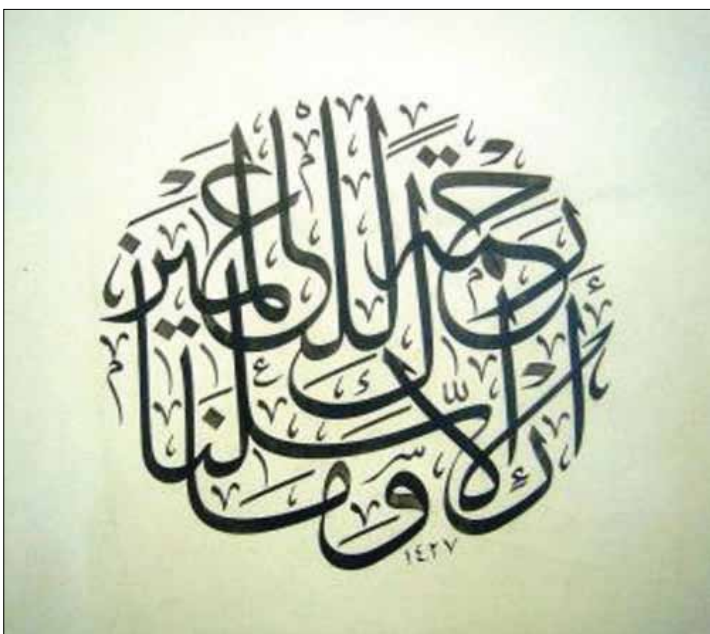 وما أرسلناك إلا رحمة للعالمين
١٤٢٧